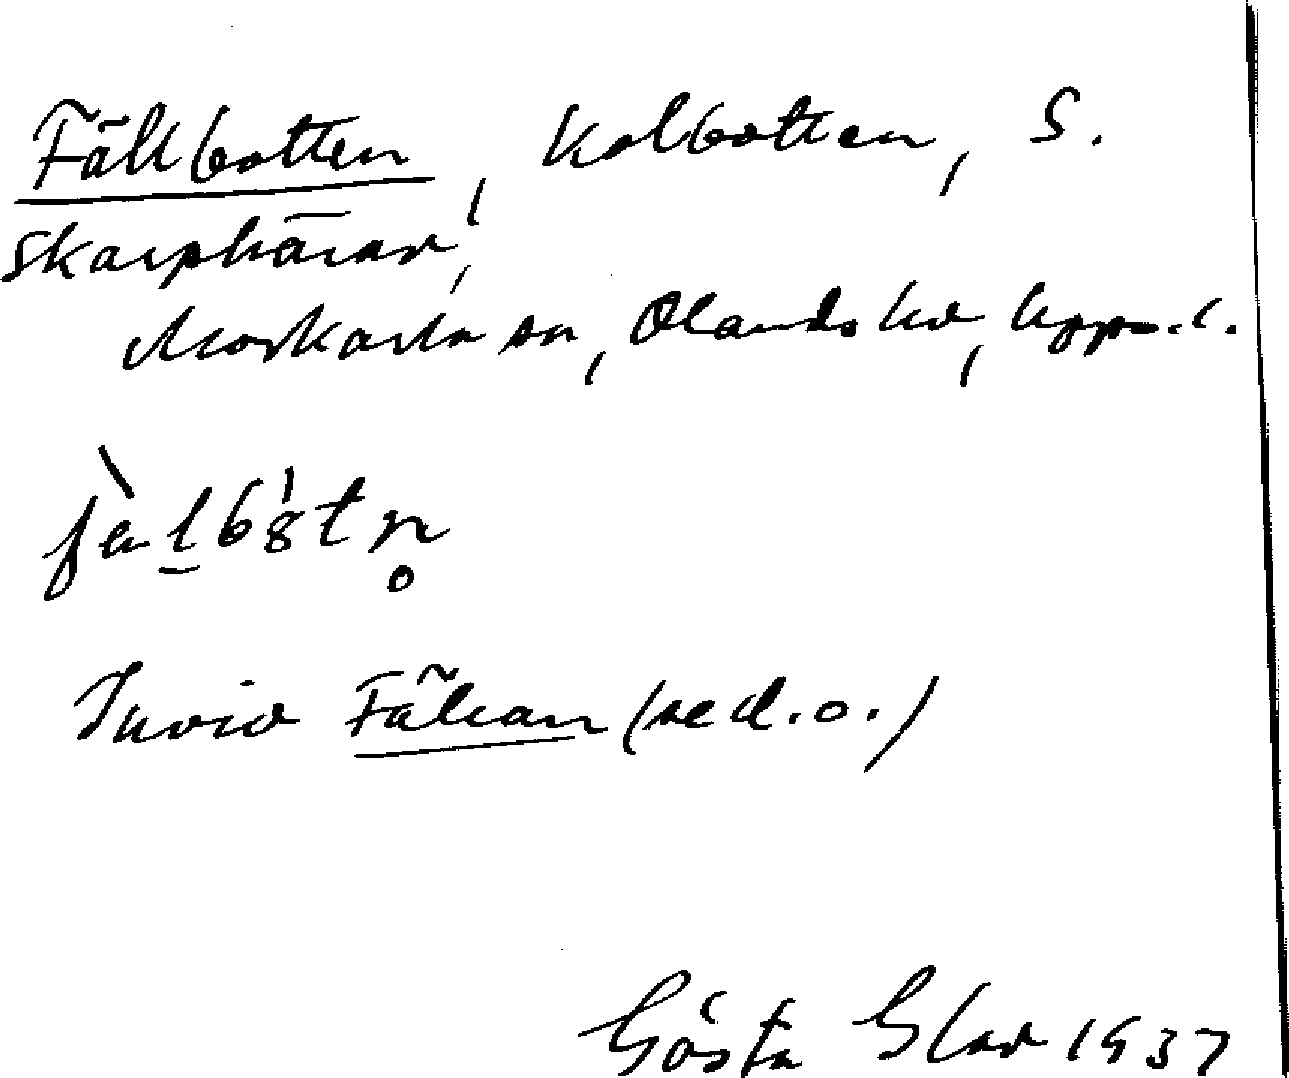 Fällbotten, Kolbotten, S.
Skarphärar,
Morkarla sn, Olands hd, Upps. l.
Invid Fälran (se d. o.)
Gösta Glas 1937